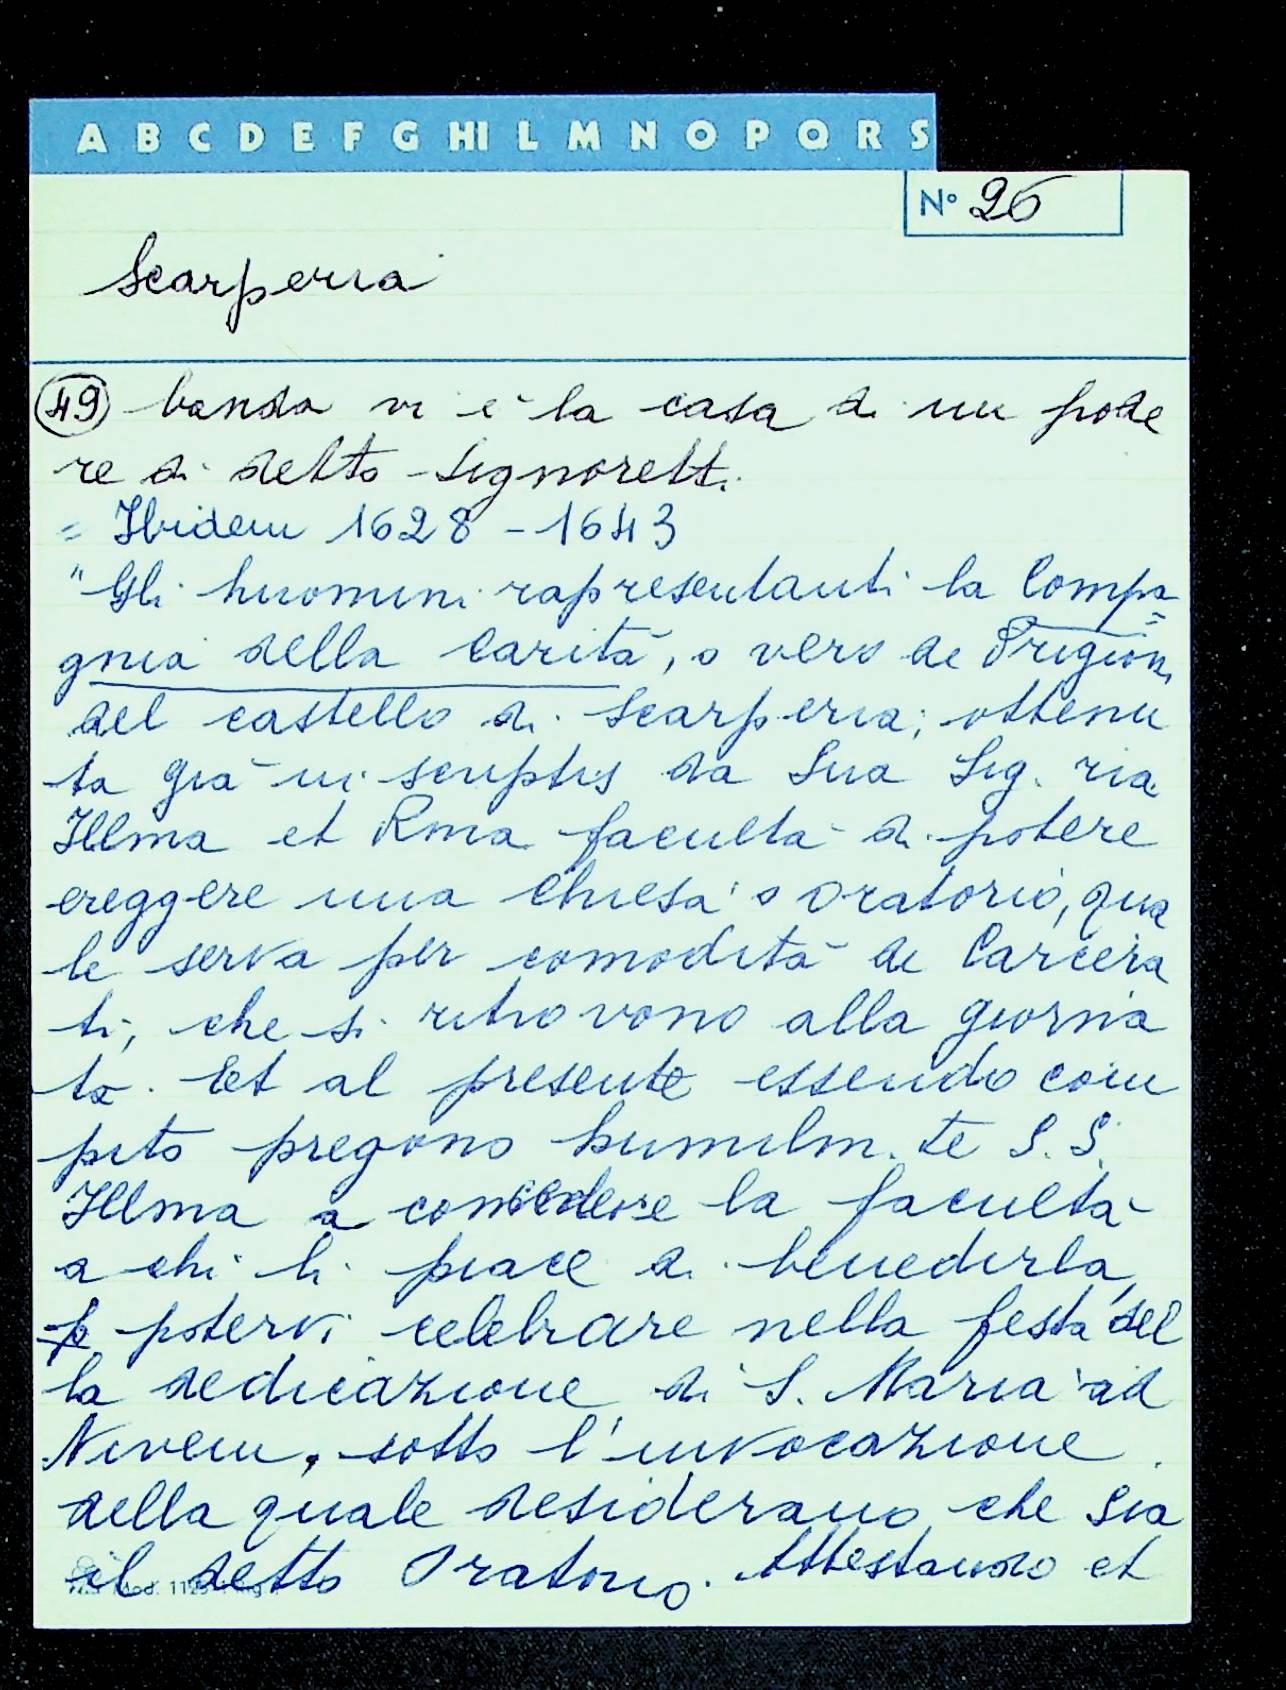 A B C D E F G HI L M N O P Q R S
N° 26
Scarperia
49 banda vi è la casa di un pode
re di detto Signoretti.
= Ibidem 1628 - 1643
"Gli huomini rapresentanti la Compa=
gnia della Carità, o vero de Prigioni
del castello di Scarperia, ottenu
ta già in scriptis da Sua Sig.ria
Illma et Rma facultà di potere
ereggere una chiesa o oratorio, qua
le serva per comodità de Carcera
ti, che si ritrovono alla giorna
ta. Et al presente essendo com
pito pregono humilm.te S. S.
Illma a concedere la facultà
a chi li piace di benedirla,
p potervi celebrare nella festa del
la dedicazione di S. Maria ad
Nivem, sotto l'invocazione
della quale desiderano che sia
il detto Oratorio. Attestando et